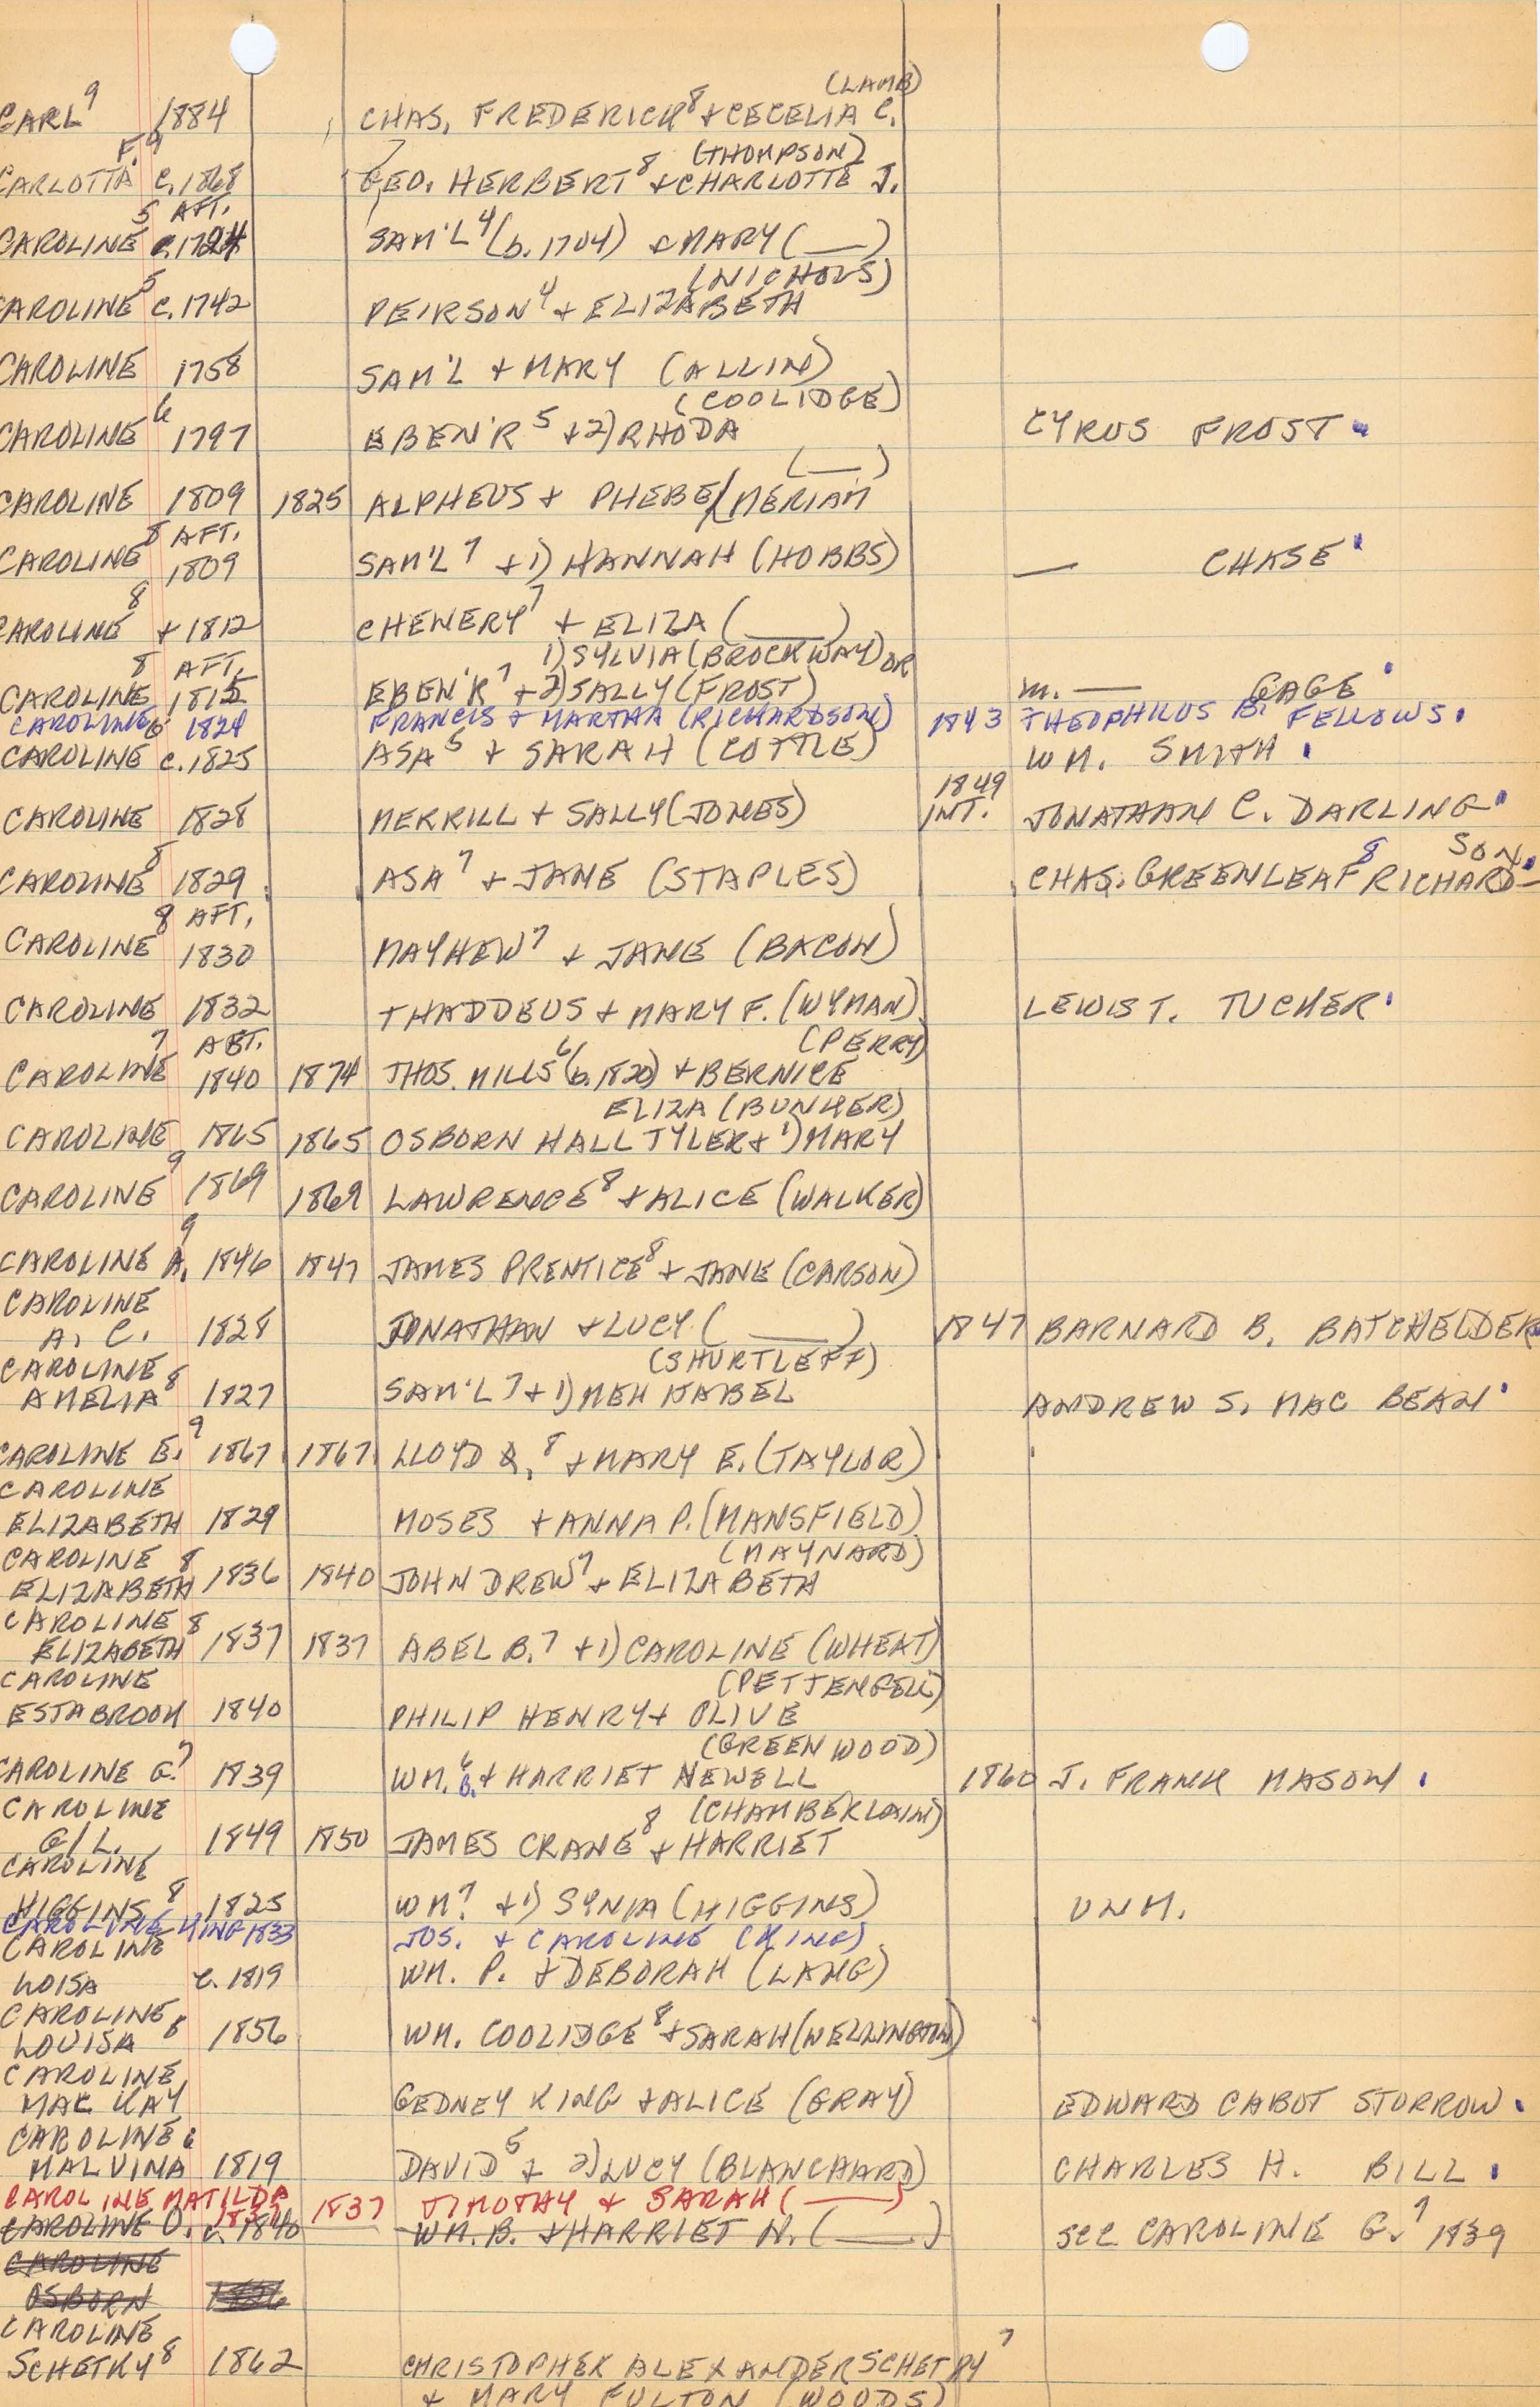 (LAMB)
CARL⁹ 1884 CHAS. FREDERICK⁸ + CECELIA C.
F.⁹ (THOMPSON)
CARLOTTA C. 1868 GEO. HERBERT⁸ + CHARLOTTE J.
5 AFT.
CAROLINE 1724 SAM'L⁴ (b. 1704) + MARY (___)
5 (NICHOLS)
CAROLINE C. 1742 PEIRSON⁴ + ELIZABETH
CAROLINE 1758 SAM'L + MARY (ALLIN)
(COOLIDGE)
CAROLINE⁶ 1797 EBEN'R⁵ + 2) RHODA CYRUS FROST
(___)
CAROLINE 1809 1825 ALPHEUS + PHEBE/MERIAM
8 AFT.
CAROLINE 1809 SAM'L⁷ + 1) HANNAH (HOBBS) — CHASE
CAROLINE⁸ + 1812 CHENERY⁷ + ELIZA (___)
8 AFT. 1) SYLVIA (BROCKWAY) OR
CAROLINE 1815 EBEN'R⁷ + 2) SALLY (FROST) m. — GAGE
CAROLINE⁶ 1824 FRANCIS + MARTHA (RICHARDSON) 1843 THEOPHILUS B. FELLOWS.
CAROLINE C. 1825 ASA⁵ + SARAH (COTTLE) WM. SMITH.
1849
CAROLINE 1828 MERRILL + SALLY (JONES) INT. JONATHAN C. DARLING
SON.
CAROLINE⁸ 1829 ASA⁷ + JANE (STAPLES) CHAS. GREENLEAF⁸ RICHARD-
8 AFT.
CAROLINE 1830 MAYHEW⁷ + JANE (BACON)
CAROLINE 1832 THADDEUS + MARY F. (WYMAN) LEWIS T. TUCKER
7 ABT. (PERRY)
CAROLINE 1840 1874 THOS. MILLS⁶ (b. 1820) + BERNICE
ELIZA (BUNKER)
CAROLINE 1865 1865 OSBORN HALL TYLER + 1) MARY
CAROLINE⁹ 1869 1869 LAWRENCE⁸ + ALICE (WALKER)
CAROLINE A.⁹ 1846 1847 JAMES PRENTICE⁸ + JANE (CARSON)
CAROLINE
A. C. 1828 JONATHAN + LUCY (___) 1847 BARNARD B. BATCHELDER
CAROLINE (SHURTLEFF)
AMELIA⁸ 1827 SAM'L⁷ + 1) MEHITABEL ANDREW S. MAC BEAN
CAROLINE E.⁹ 1867 1867 LLOYD Q.⁸ + MARY E. (TAYLOR)
CAROLINE
ELIZABETH 1829 MOSES + ANNA P. (MANSFIELD)
CAROLINE (MAYNARD)
ELIZABETH⁸ 1836 1840 JOHN DREW⁷ + ELIZABETH
CAROLINE
ELIZABETH⁸ 1837 1837 ABEL B.⁷ + 1) CAROLINE (WHEAT)
CAROLINE (PETTENGELL)
ESTABROOK 1840 PHILIP HENRY + OLIVE
(GREENWOOD)
CAROLINE G.⁷ 1839 WM.⁶ B. + HARRIET NEWELL 1860 J. FRANK MASON.
CAROLINE (CHAMBERLAIN)
GIL. 1849 1850 JAMES CRANE⁸ + HARRIET
CAROLINE
HIGGINS⁸ 1825 WM⁷ + 1) SYNIA (HIGGINS) UNM.
CAROLINE KING 1833 JOS. + CAROLINE (KING)
CAROLINE
LOISA C. 1819 WM. P. + DEBORAH (LANG)
CAROLINE
LOUISA⁸ 1856 WM. COOLIDGE⁸ + SARAH (WELLINGTON)
CAROLINE
MAC KAY GEDNEY KING + ALICE (GRAY) EDWARD CABOT STORROW.
CAROLINE⁶
MALVINA 1819 DAVID⁵ + 2) LUCY (BLANCHARD) CHARLES H. BILL.
CAROLINE MATILDA 1837 1837 TIMOTHY + SARAH (___)
CAROLINE O. C. 1840 WM. B. + HARRIET N. (___) SEE CAROLINE G.⁷ 1839
CAROLINE
OSBORN
CAROLINE
SCHETKY⁸ 1862 CHRISTOPHER ALEXANDER SCHETKY⁷
+ MARY FULTON (WOODS)